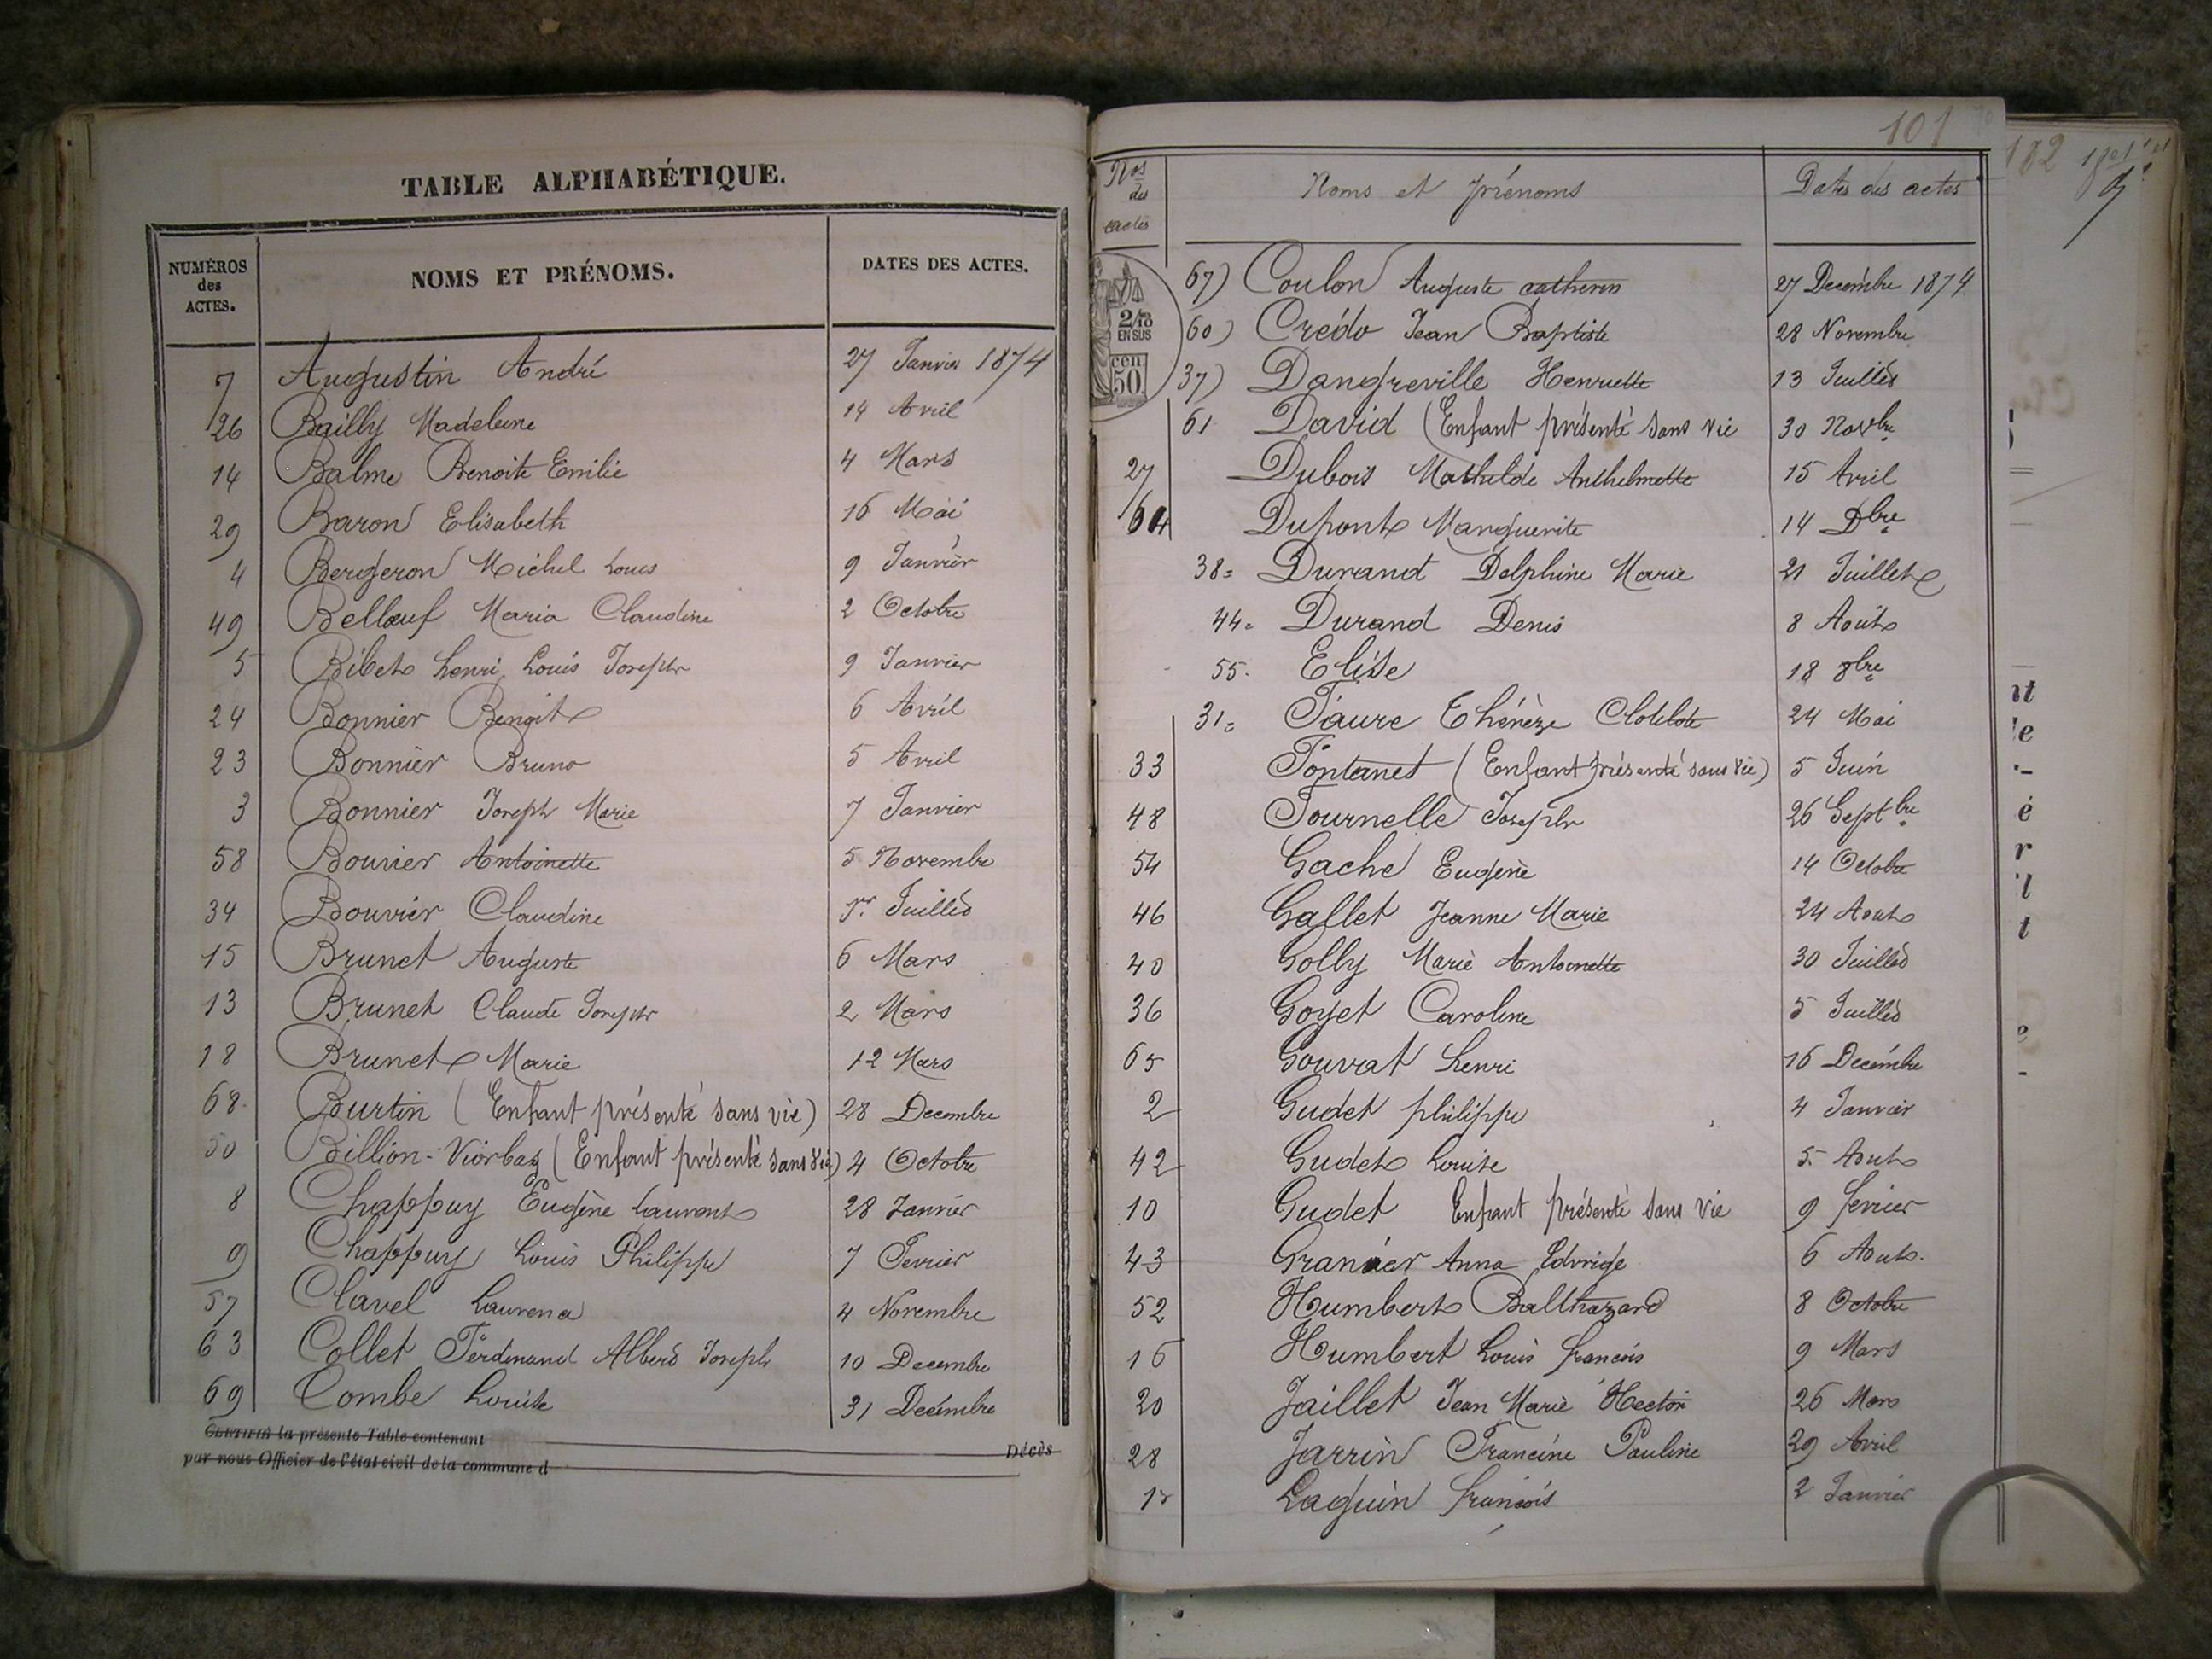 TABLE ALPHABÉTIQUE.
NUMÉROS des ACTES. NOMS ET PRÉNOMS. DATES DES ACTES.
7 Augustin André 27 Janvier 1874
26 Bailly Madeleine 14 Avril
14 Balme Benoite Emilie 4 Mars
29 Baron Elisabeth 16 Mai
4 Bergeron Michel Louis 9 Janvier
49 Bellœuf Maria Claudine 2 Octobre
5 Bibet henri Louis Joseph 9 Janvier
24 Bonnier Benoit 6 Avril
23 Bonnier Bruno 5 Avril
3 Bonnier Joseph Marie 7 Janvier
58 Bouvier Antoinette 5 Novembre
34 Bouvier Claudine 1er Juillet
15 Brunet Auguste 6 Mars
13 Brunet Claude Joseph 2 Mars
18 Brunet Marie 12 Mars
68 Burtin (Enfant présenté sans vie) 28 Decembre
50 Billion-Viorbaz (Enfant présenté sans vie) 4 Octobre
8 Chappuy Eugène Laurent 28 Janvier
9 Chappuy Louis Philippe 7 Fevrier
57 Clavel Laurena 4 Novembre
63 Collet Ferdinand Albert Joseph 10 Decembre
69 Combe Louise 31 Decembre
CERTIFIÉ la présente Table contenant Décès
par nous Officier de l'état civil de la commune d
101
Nos des actes Noms et prénoms Dates des actes
2/10 EN SUS
cen 50
67) Coulon Auguste catherin 27 Decembre 1874
60) Crédo Jean Baptiste 28 Novembre
37) Dangreville Henriette 13 Juillet
61 David (Enfant présenté sans vie 30 Novbre
27 Dubois Mathilde Anthelmette 15 Avril
64 Dupont Marguerite 14 Dbre
38= Durand Delphine Marie 21 Juillet
44= Durand Denis 8 Août
55. Elise 18 8bre
31= Faure Thérèze Clotilde 24 Mai
33 Fontanet (Enfant présenté sans vie) 5 Juin
48 Fournelle Joseph 26 Septbre
54 Gache Eugène 14 Octobre
46 Gallet Jeanne Marie 24 Aout
40 Golly Marie Antoinette 30 Juillet
36 Goyet Caroline 5 Juillet
65 Gouvrat henri 16 Decembre
2 Gudet philippe 4 Janvier
42 Gudet Louise 5 Aout
10 Gudet Enfant présenté sans vie 9 fevrier
43 Granier Anna Edvrige 6 Aout.
52 Humbert Balthazard 8 Octobre
16 Humbert Louis francois 9 Mars
20 Jaillet Jean Marie Hector 26 Mars
28 Jarrin Francine Pauline 29 Avril
1r Laguin francois 2 Janvier
182